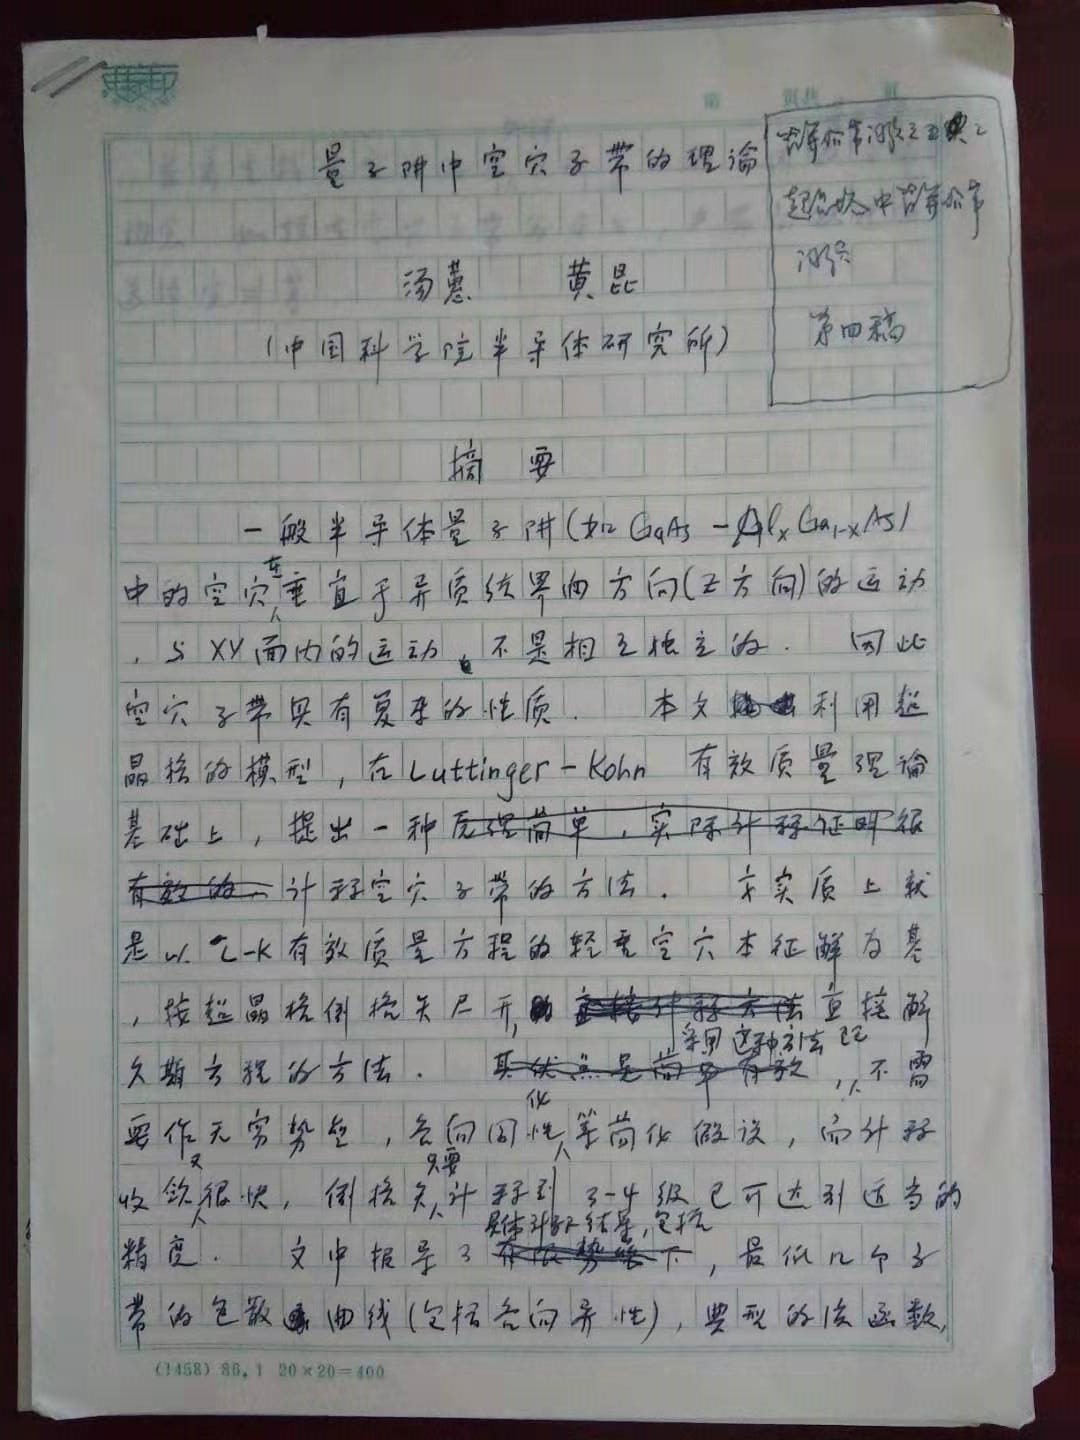 第 页共 页
量子阱中空穴子带的理论
汤蕙 黄昆
(中国科学院半导体研究所)
第四稿
摘 要
一般半导体量子阱(如GaAs-AlxGa1-xAs)
中的空穴在垂直于异质结界面方向(Z方向)的运动
,与XY面内的运动,不是相互独立的. 因此
空穴子带具有复杂的性质. 本文利用超
晶格的模型,在Luttinger-Kohn 有效质量理论
基础上,提出一种原理简单,实际计算证明很
有效的计算空穴子带的方法. 它实质上就
是以L-K有效质量方程的轻重空穴本征解为基
,按超晶格倒格矢展开,直接解
久期方程的方法. 采用这种方法既
其优点是简单有效,不需
要作无穷势垒,各向同性化等简化假设,而计算
收敛又很快, 倒格矢只要计算到 3-4 级已可达到适当的
具体计算结果,包括
精度. 文中报导了有限势垒下,最低几个子
带的色散曲线(包括各向异性),典型的波函数,
(1468) 86.1 20×20=400